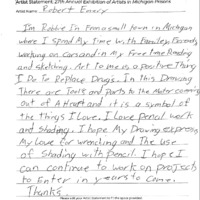 Artist Statement, 27th Annual Exhibition of Artists in Michigan Prisons
Artist Name: Robert Emery
I'm Robbie I'm from a small town in Michigan
where I spend My time with Family, Friends,
working on cars and in My Free time Reading
and sketching. Art To me is a positive Thing
I Do To Replace Drugs. In this Drawing
There are Tools and Parts to the Motor coming
out of A Heart and it is a symbol of
the Things I Love. I Love Pencil work
and Shading. I hope My Drawing express
My Love for wrenching and The use
of Shading with Pencil. I hope I
can continue To work on projects
to Enter in years to come.
Thanks
Please add your Artist Statement to the space provided.